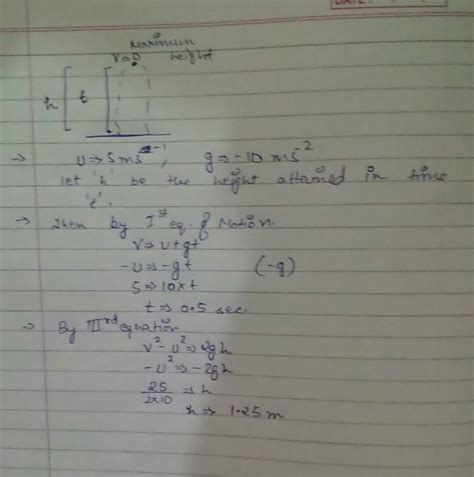 DATE:
Maximum
V⇒0 height
h t
→ U⇒5ms⁻¹, g⇒-10 ms⁻²
let 'h' be the height attained in time
't'.
→ Then by Iˢᵗ eq. of Motion.
V⇒U+gt
-U⇒-gt (-g)
5⇒10xt
t⇒0.5 sec.
→ By IIIʳᵈ equation
V²-U²⇒2gh
-U²⇒-2gh
25/2x10 ⇒h
h⇒1.25m